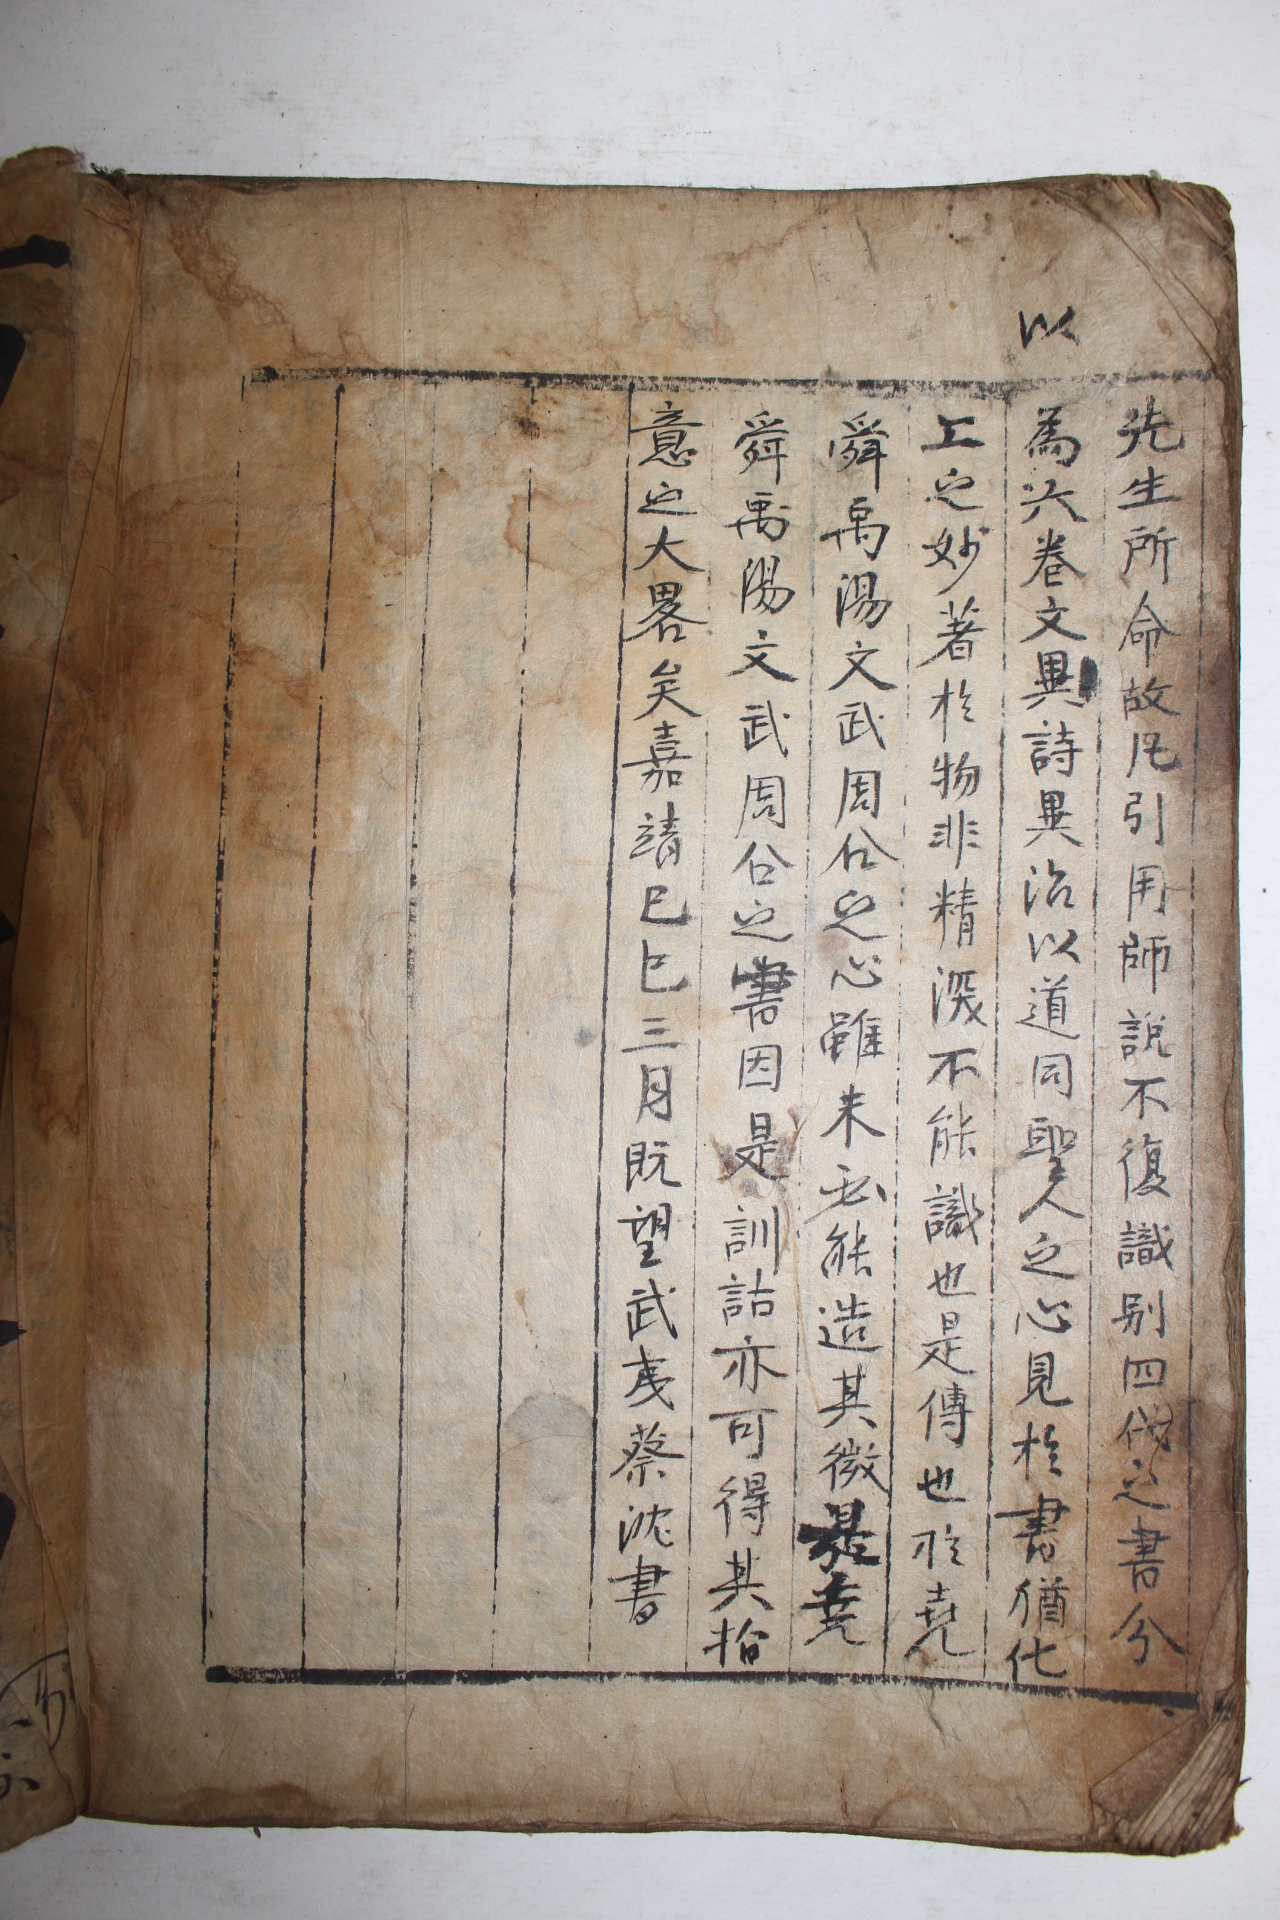 以
先生所命故凡引用師說不復識别四代之書分
為六卷文異詩異治以道同聖人之心見於書猶化
工之妙著於物非精深不能識也是傳也於堯
舜禹湯文武周公之心雖未必能造其微堯
舜禹湯文武周公之書因是訓詁亦可得其拾
意之大畧矣嘉靖巳巳三月既望武夷蔡沈書